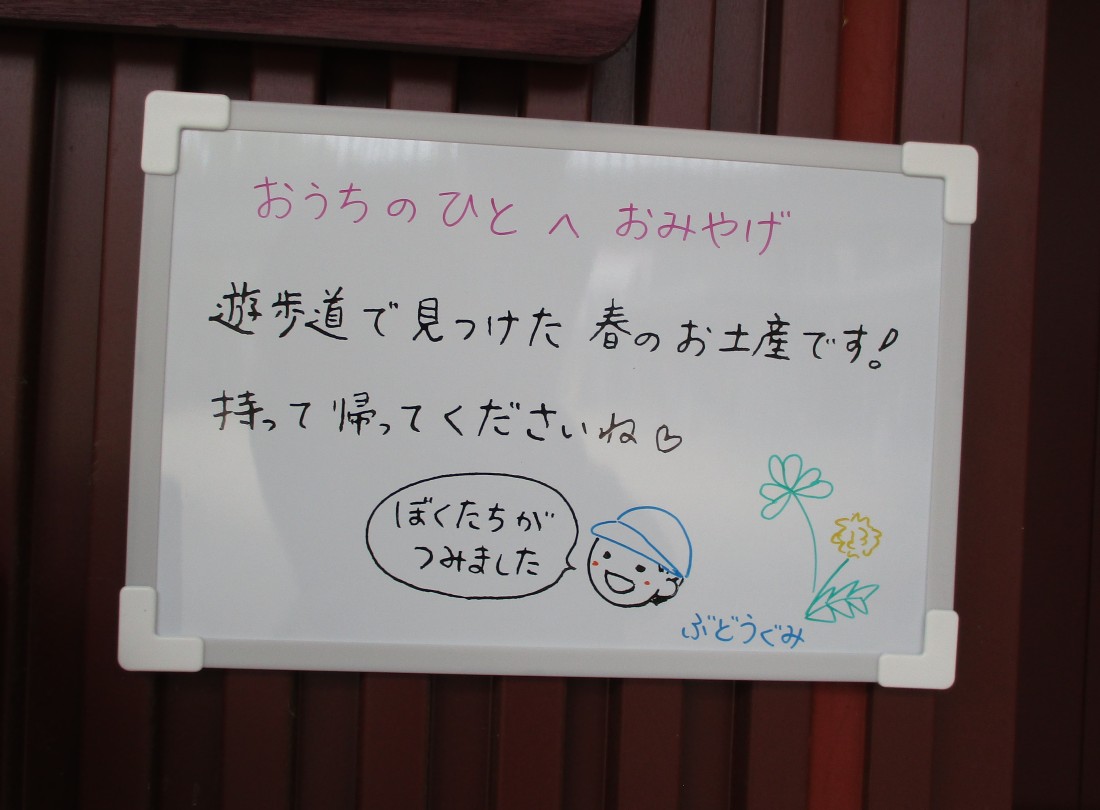 おうちのひとへ おみやげ
遊歩道で見つけた 春のお土産です!
持って帰ってくださいね♡
ぼくたちが
つみました
ぶどうぐみ